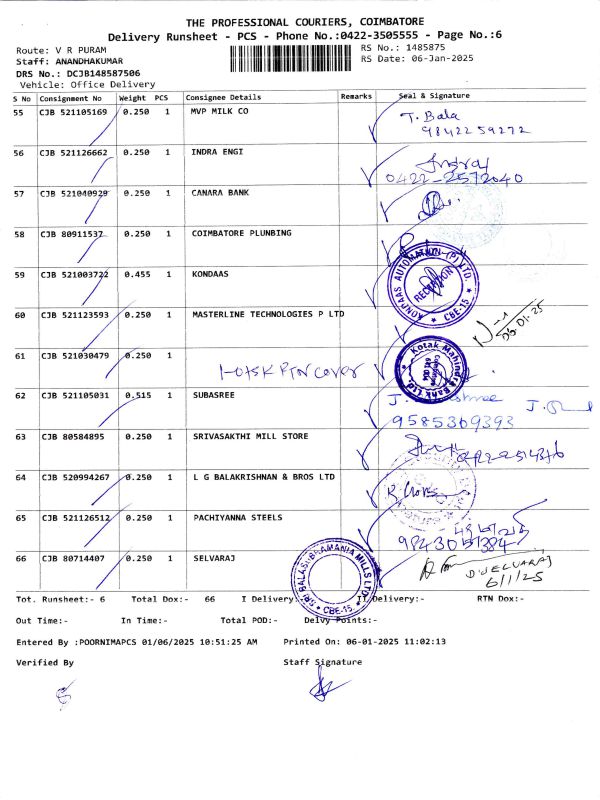 THE PROFESSIONAL COURIERS, COIMBATORE
Delivery Runsheet - PCS - Phone No.:0422-3505555 - Page No.:6
Route: V R PURAM
RS No.: 1485875
Staff: ANANDHAKUMAR
RS Date: 06-Jan-2025
DRS No.: DCJB148587506
Vehicle: Office Delivery
S No Consignment No Weight PCS Consignee Details Remarks Seal & Signature
55 CJB 521105169 0.250 1 MVP MILK CO T. Bala
9842259272
56 CJB 521126662 0.250 1 INDRA ENGI
0422-2572040
57 CJB 521040929 0.250 1 CANARA BANK
58 CJB 80911537 0.250 1 COIMBATORE PLUNBING
59 CJB 521003722 0.455 1 KONDAAS KONDAAS AUTOMATION (P) LTD. RECEPTION CBE-15
60 CJB 521123593 0.250 1 MASTERLINE TECHNOLOGIES P LTD
06-01-25
61 CJB 521030479 0.250 1 Kotak Mahindra Bank Ltd.
62 CJB 521105031 0.515 1 SUBASREE
9585369393
63 CJB 80584895 0.250 1 SRIVASAKTHI MILL STORE
64 CJB 520994267 0.250 1 L G BALAKRISHNAN & BROS LTD
65 CJB 521126512 0.250 1 PACHIYANNA STEELS
66 CJB 80714407 0.250 1 SELVARAJ
SRI BALASUBRAMANIA MILLS LTD. CBE-15.
6/1/25
Tot. Runsheet:- 6 Total Dox:- 66 I Delivery:- II Delivery:- RTN Dox:-
Out Time:- In Time:- Total POD:- Delvy Points:-
Entered By :POORNIMAPCS 01/06/2025 10:51:25 AM Printed On: 06-01-2025 11:02:13
Verified By Staff Signature